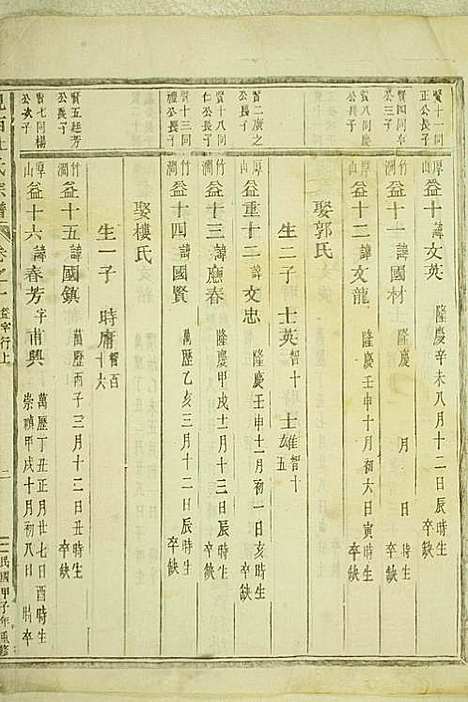 賢一同
正公長子
厚山
益十 諱文英 隆慶辛未八月十二日辰時生 卒缺
賢四同
公三子
竹澗
益十一 諱國材 月 日 時生 卒缺
賢八同慶
公長子
厚山
益十二 諱文龍 隆慶壬申十月初六日寅時生 卒缺
娶郭氏
生二子 士英 智十 士雄 智十五
賢二廣之
公長子
厚山
益重十二 諱文忠 隆慶壬申十一月初一日亥時生 卒缺
賢十八同
仁公長子
益十三 諱應春 隆慶甲戌十二月十三日辰時生 卒缺
賢十三同
禮公長子
竹澗
益十四 諱國賢 萬歷乙亥三月十二日辰時生 卒缺
娶樓氏
生一子 時庸 智百十六
賢五廷芳
公長子
竹澗
益十五 諱國鎮 萬歷丙子三月十二日丑時生 卒缺
賢七同楊
公次子
厚山
益十六 諱春芳 字甫興 萬歷丁丑正月廿七日酉時生
崇禎甲戌十月初八日 時卒
氏宗譜 卷之一 益字行上 二 民國甲子年重修